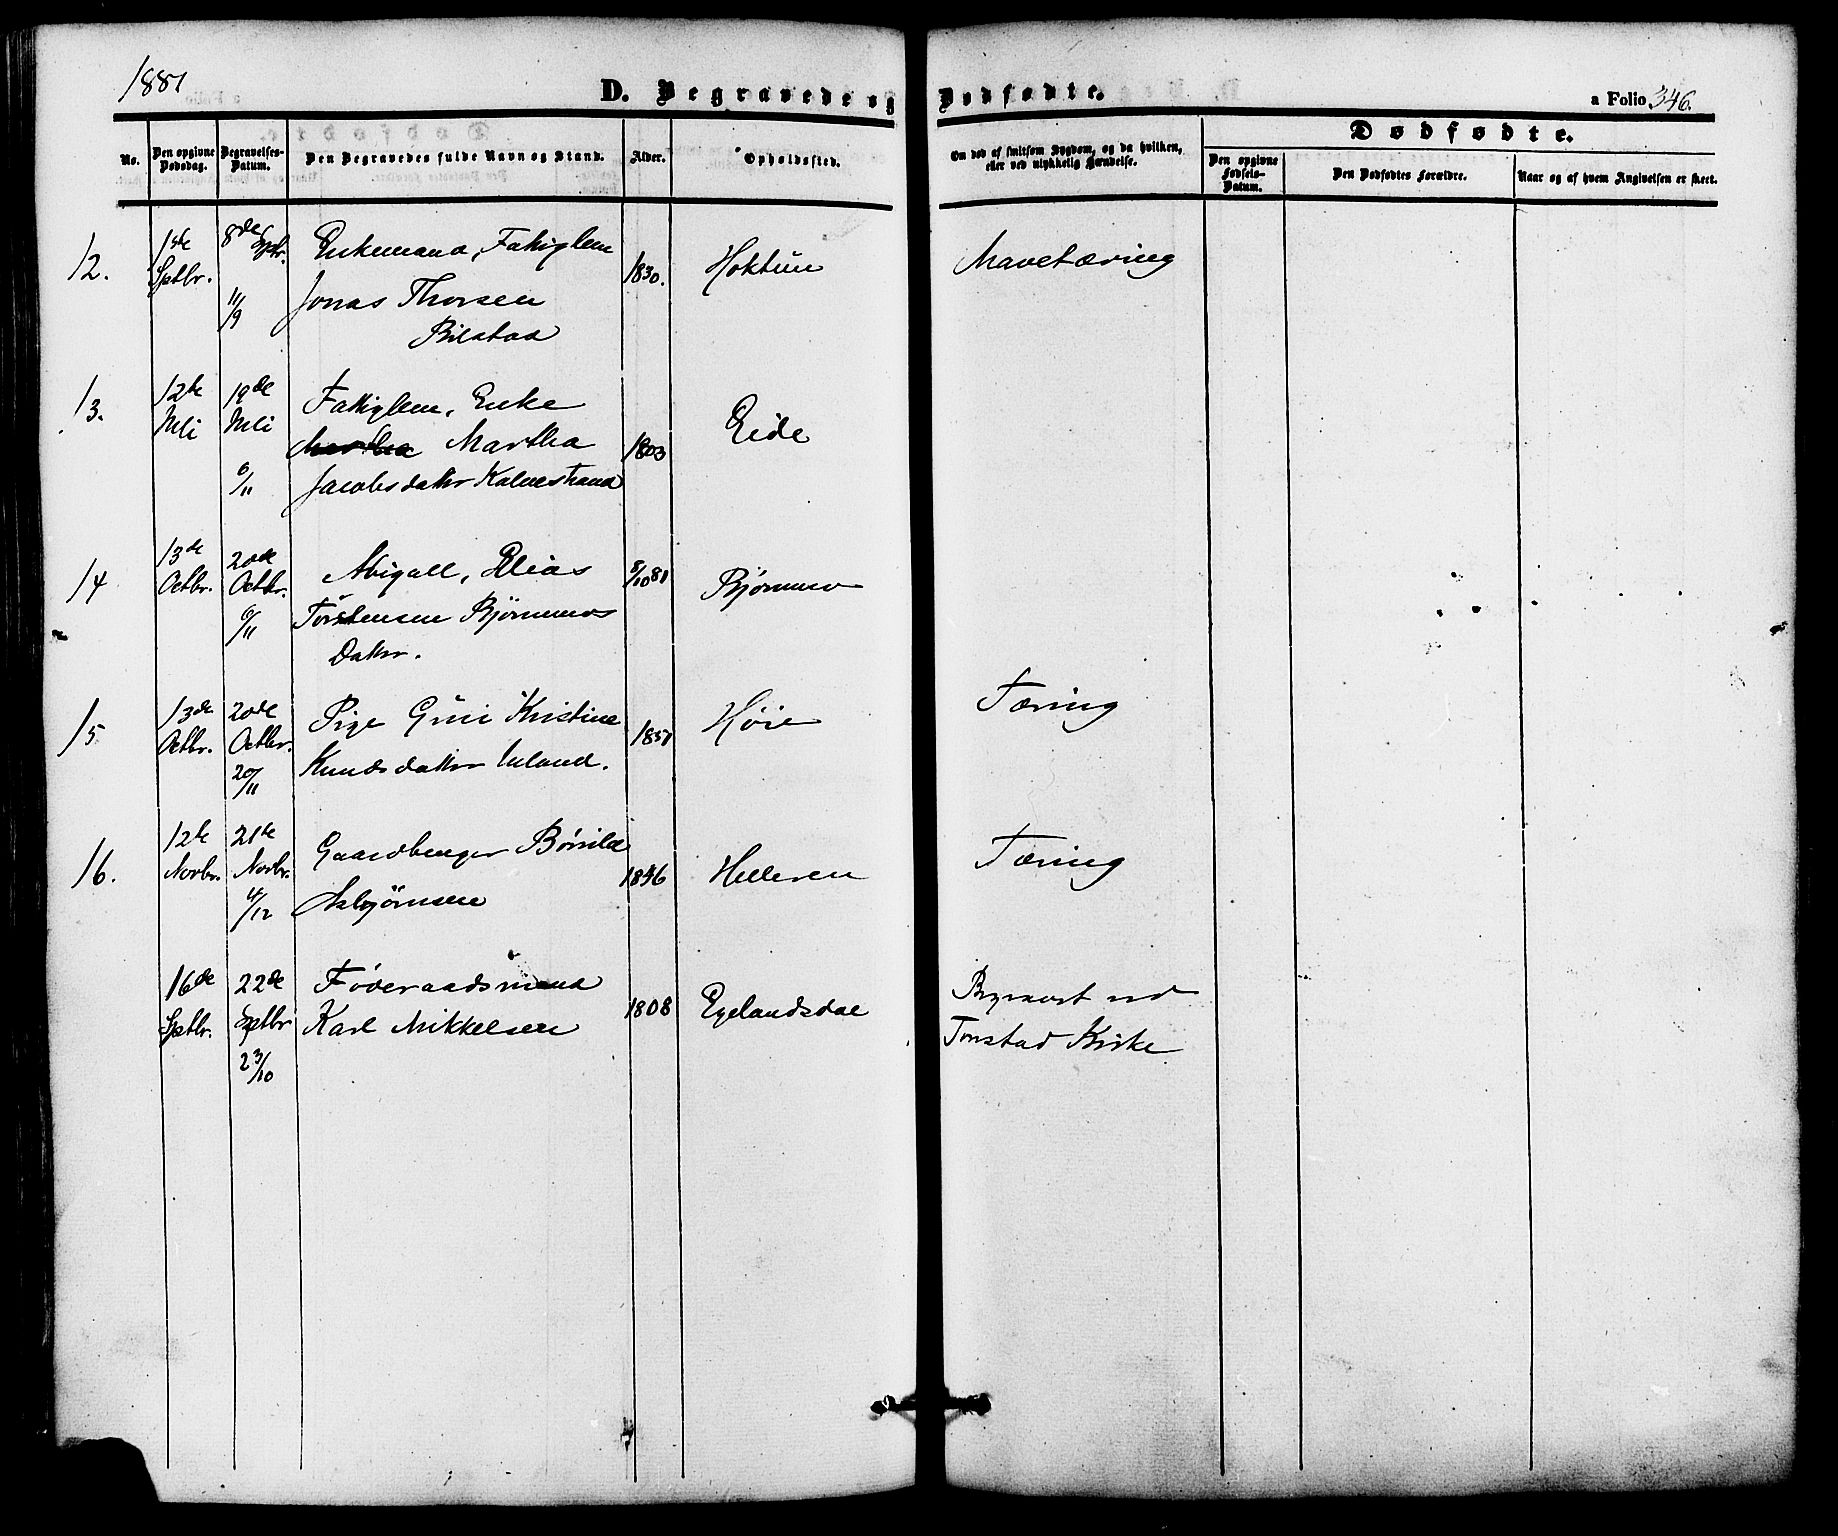 1881
D. Begravede og Dødfødte.
a Folio 346.
No.
Den opgivne Dødsdag.
Begravelses-Datum.
Den Begravedes fulde Navn og Stand.
Alder.
Opholdssted.
Om død af smitsom Sygdom, og da hvilken,
eller ved ulykkelig Hændelse.
Dødfødte.
Den opgivne Fødsels-Datum.
Den Dødfødtes Forældre.
Naar og af hvem Angivelsen er skeet.
12. 1ste Sptbr. 8de Sptbr. 11/9
Enkemand, Fattiglem
Jonas Thorsen
Bilstad
1830. Hoktun Mavetæring
13. 12te Mai 19de Mai 6/11
Fattiglem, Enke
Martha Martha
Jacobsdatter Kalvestrand
1803 Eide
14 13de Octbr. 20de Octbr. 6/11
Abigail, Elias
Torstensen Bjørnmos
Datter.
8/10 81 Bjørnmo
15 13de Octbr. 20de Octbr. 20/11
Pige Guri Kristine
Knudsdatter Luland.
1851 Høie Tæring
16. 12te Novbr. 21de Novbr. 4/12
Gaardbruger Børild
Asbjørnsen
1846 Helleren Tæring
16de Sptbr. 22de Sptbr 23/10
Føderaadsmand
Karl Mikkelsen
1808 Egelandsdal
Begravet ved
Tonstad Kirke